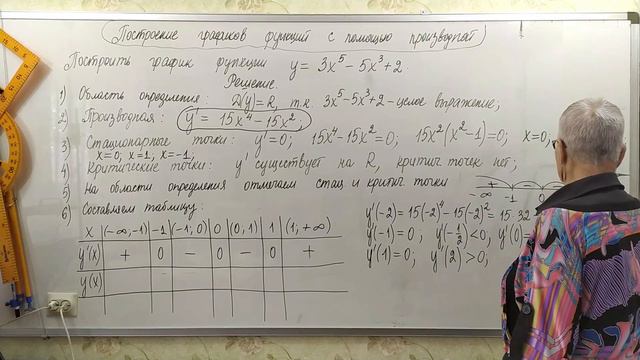 Построение графиков функций с помощью производной
Построить график функции y = 3x⁵ − 5x³ + 2.
Решение.
1) Область определения: D(y) = R, т.к. 3x⁵ − 5x³ + 2 − целое выражение;
2) Производная: y' = 15x⁴ − 15x²;
3) Стационарные точки: y' = 0; 15x⁴ − 15x² = 0; 15x²(x² − 1) = 0; x = 0;
x = 0; x = 1; x = −1;
4) Критические точки: y' существует на R, критич точек нет;
5) На области определения отмечаем стац и критич точки
−∞ −1 0
6) Составляем таблицу:
y'(−2) = 15(−2)⁴ − 15(−2)² = 15 · 32
y'(−1) = 0; y(−1/2) < 0, y'(0) =
y'(1) = 0; y'(2) > 0;
x (−∞, −1) −1 (−1; 0) 0 (0, 1) 1 (1; +∞)
y'(x) + 0 − 0 − 0 +
y(x)